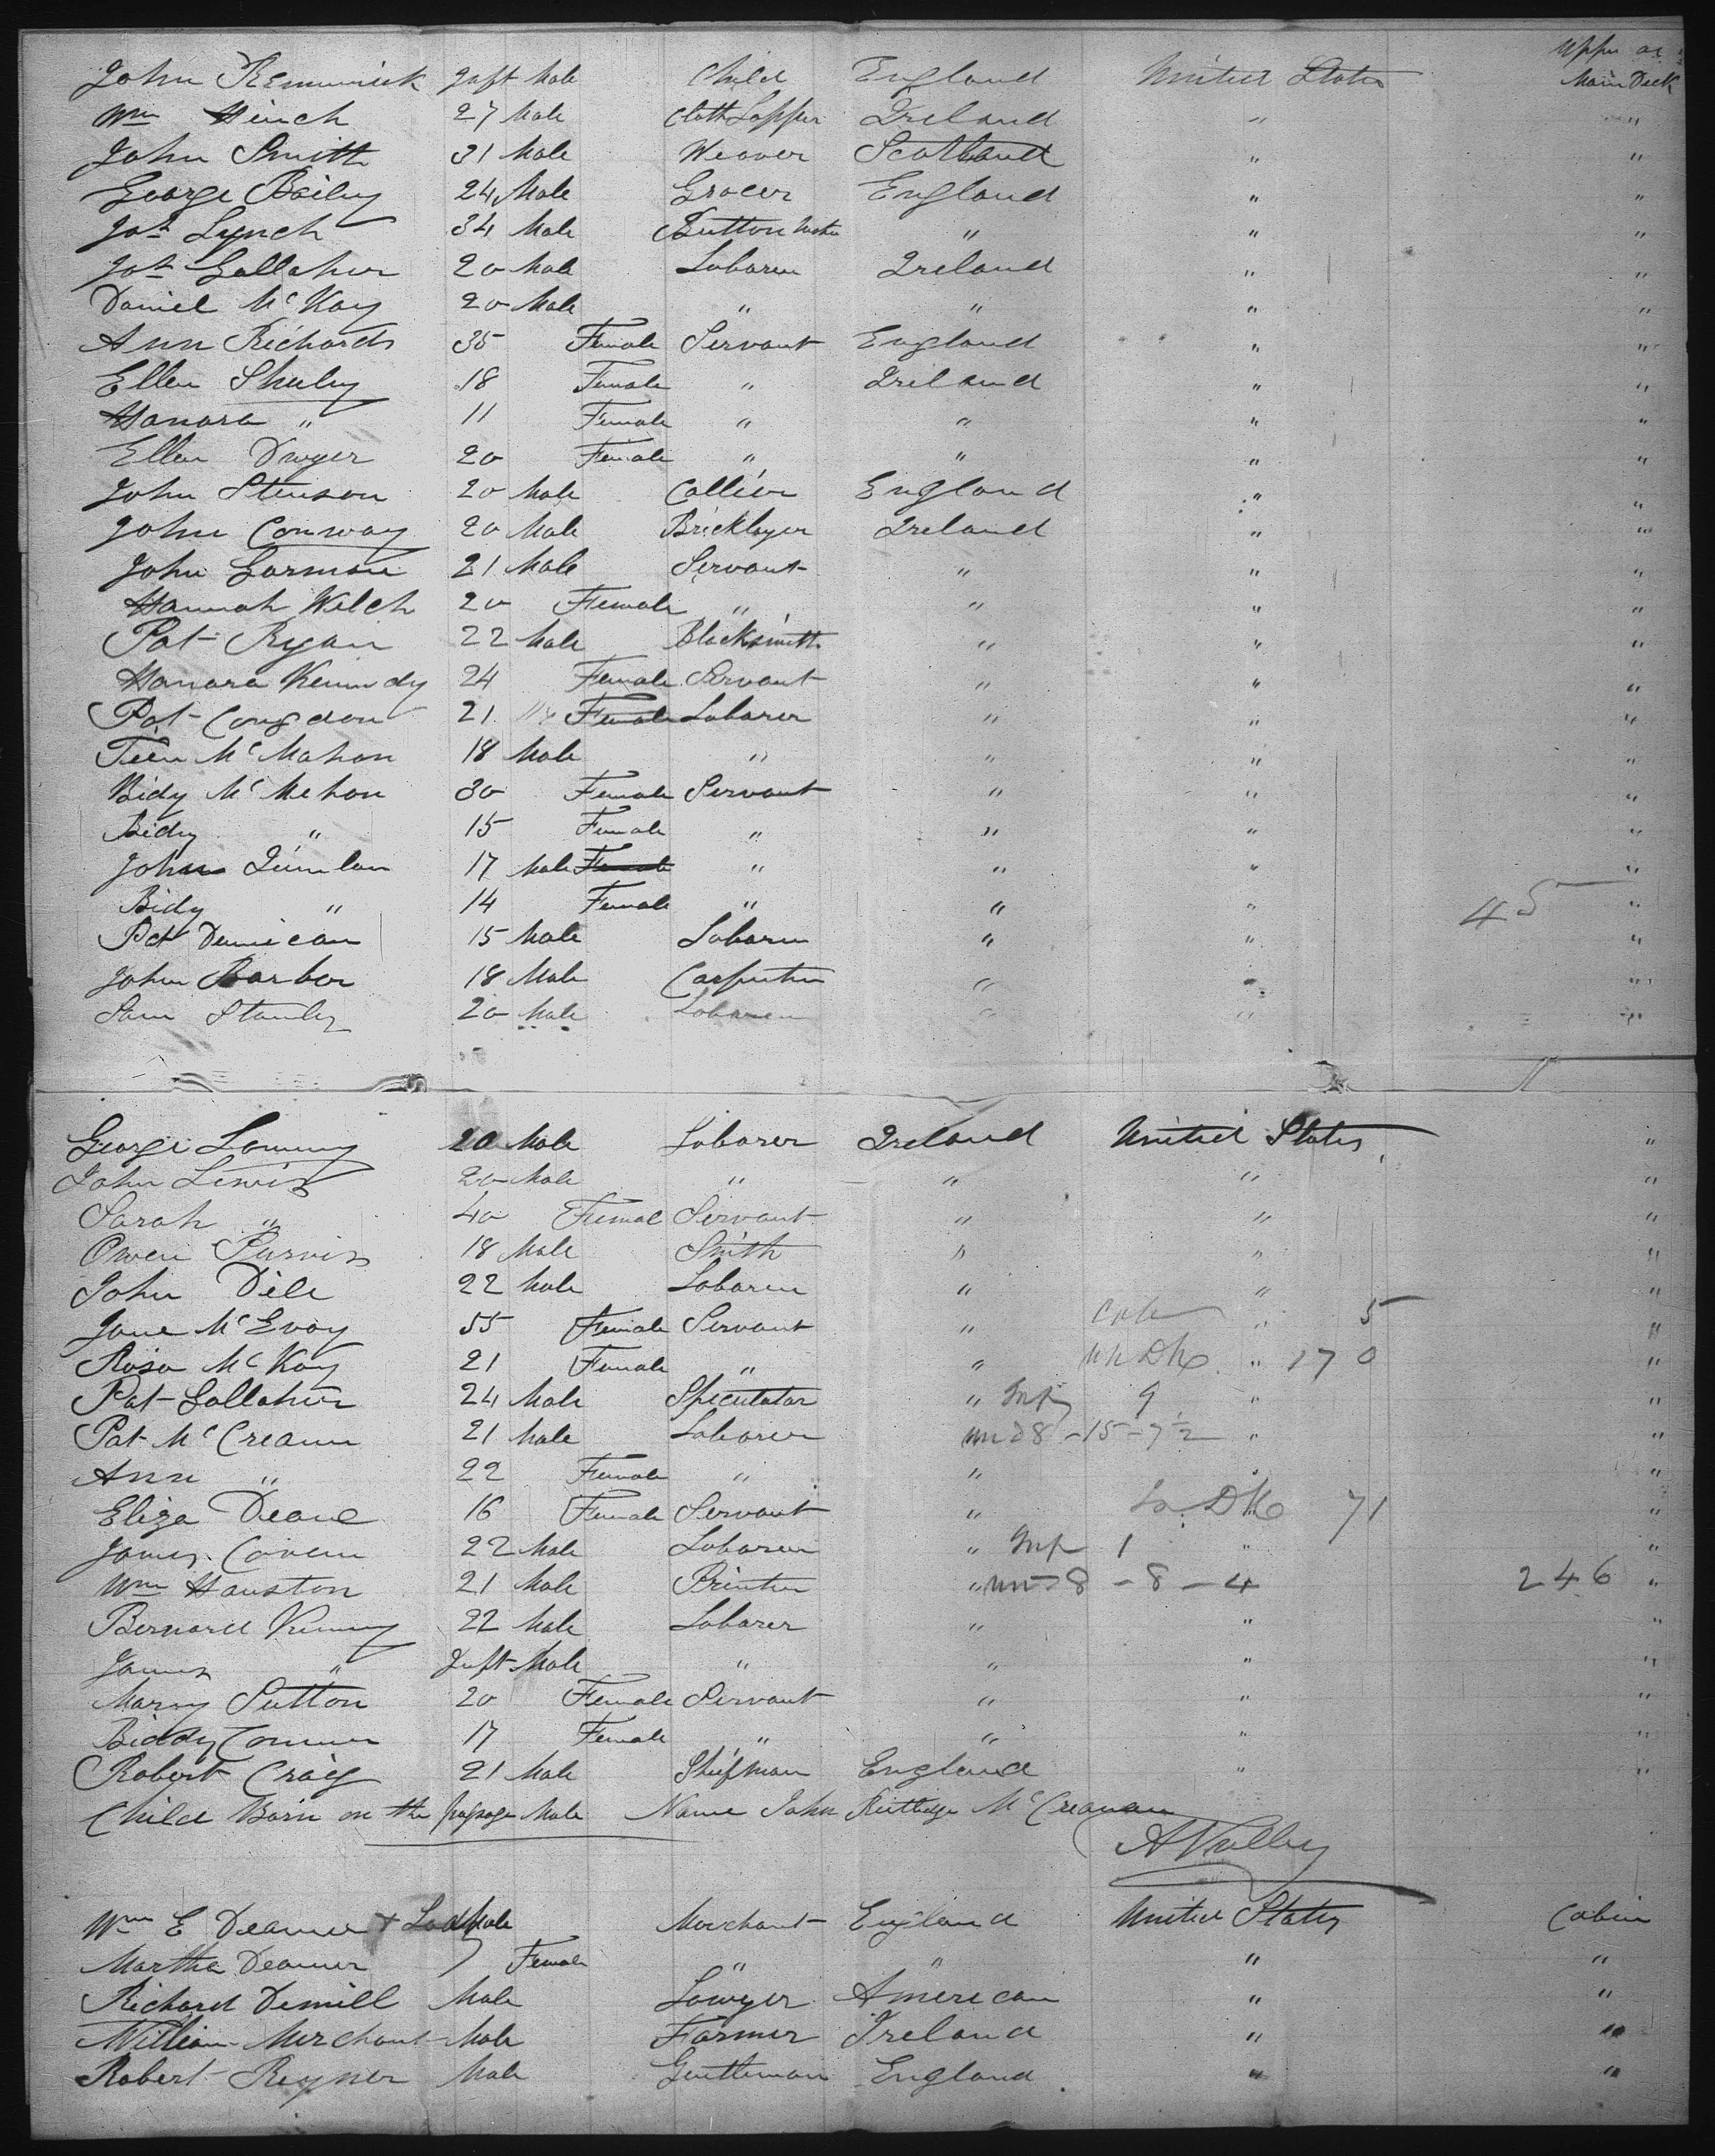 Upper or
John Remmick Inft Male Child England United States Main Deck
Wm Hinch 27 Male Cloth Lapper Ireland " "
John Smith 31 Male Weaver Scotland " "
George Bailey 24 Male Grocer England " "
Jas Lynch 34 Male Button " " "
Jas Gallaher 20 Male Laborer Ireland " "
Daniel McKay 20 Male " " " "
Ann Richards 35 Female Servant England " "
Ellen Sheehy 18 Female " Ireland " "
Hanora " 11 Female " " " "
Ellen Dwyer 20 Female " " " "
John Stenson 20 Male Collier England " "
John Conway 20 Male Bricklayer Ireland " "
John Gorman 21 Male Servant " " "
Hannah Welch 20 Female " " " "
Pat Ryan 22 Male Blacksmith " " "
Hanora Kennedy 24 Female Servant " " "
Pat Congdon 21 Female Laborer " " "
McMahon 18 Male " " " "
Bidy McMehon 30 Female Servant " " "
Bidy " 15 Female " " " "
John Quinlan 17 Male Female " " " "
Bidy " 14 Female " " " 45 "
Pat Dunican 15 Male Laborer " " "
John Barber 18 Male Carpenter " " "
Sam Stanley 20 Male Laborer " " "
George Lemmy 20 Male Laborer Ireland United States "
John Lewis 20 Male " " " "
Sarah " 40 Femal Servant " " "
Owen Purvis 18 Male Smith " " "
John Dile 22 Male Laborer " " "
Jane McEvoy 55 Female Servant " " 5 "
Rosa McKay 21 Female " " " 170 "
Pat Gallaher 24 Male Speculator " Inf 9 " "
Pat McCreann 21 Male Laborer 8 - 15 - 7½ " "
Ann " 22 Female " " " "
Eliza Deane 16 Female Servant " Lo. Dk 71 "
James Caven 22 Male Laborer " Inf 1 " "
Wm Hauston 21 Male Printer " 8 - 8 - 4 246 "
Bernard Kenny 22 Male Laborer " " "
James " Inft Male " " " "
Mary Sutton 20 Female Servant " " "
Biddy Connor 17 Female " " " "
Robert Craig 21 Male Shipman England " "
Child Born on the passage Male Name John Rutledge McCreanan
Wm E Deamer + Lady Male Merchant England United States Cabin
Martha Deamer Female " " " "
Richard Demill Male Lawyer American " "
William Merchant Male Farmer Ireland " "
Robert Reyner Male Gentleman England " "